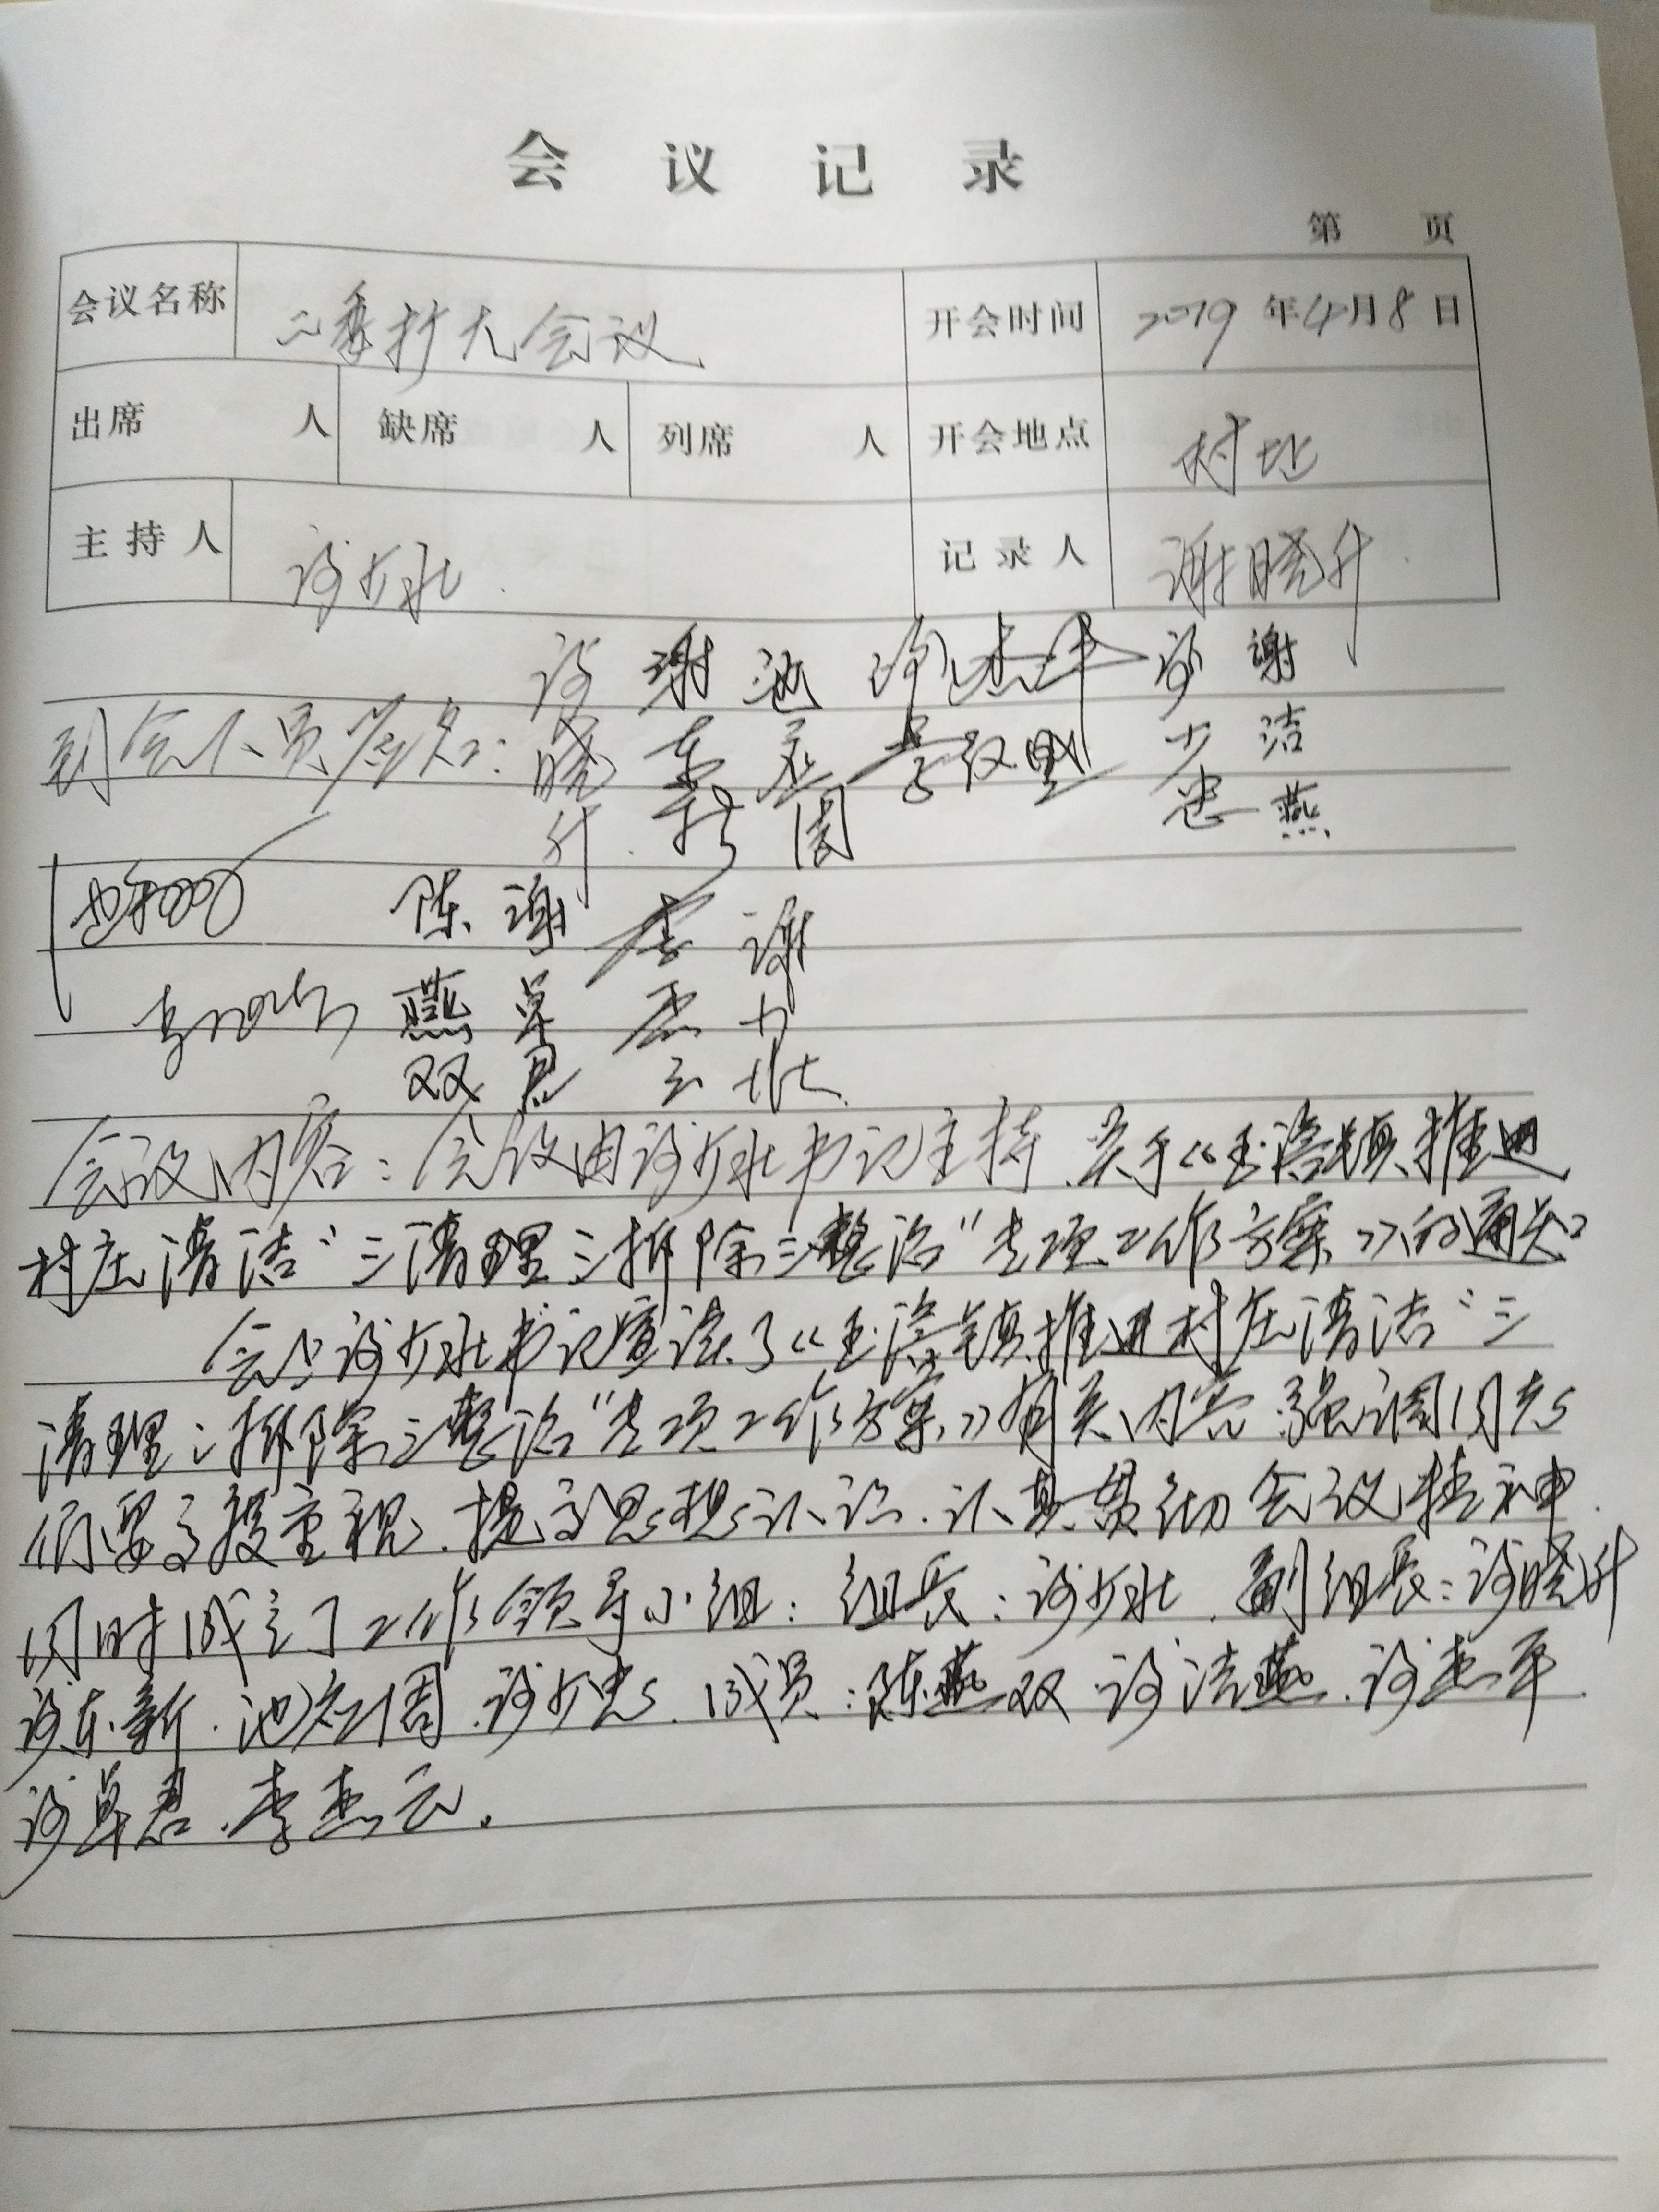 会议记录
第 页
会议名称 二委扩大会议 开会时间 2019年4月8日
出席 人 缺席 人 列席 人 开会地点 村址
主持人 谢少壮 记录人 谢晓升
到会人员签名：
谢晓升 谢东新 谢杰平 谢少忠 谢洁燕
陈燕双 谢卓君 李杰云 谢少壮
会议内容：会议由谢少壮书记主持.关于《玉滘镇推进
村庄清洁"三清理三拆除三整治"专项工作方案》的通知
会上谢少壮书记宣读了《玉滘镇推进村庄清洁"三
清理三拆除三整治"专项工作方案》有关内容.强调同志
们要高度重视.提高思想认识.认真贯彻会议精神.
同时成立了工作领导小组：组长：谢少壮.副组长：谢晓升
谢东新.池 周.谢少忠.成员：陈燕双.谢洁燕.谢杰平.
谢卓君.李杰云.